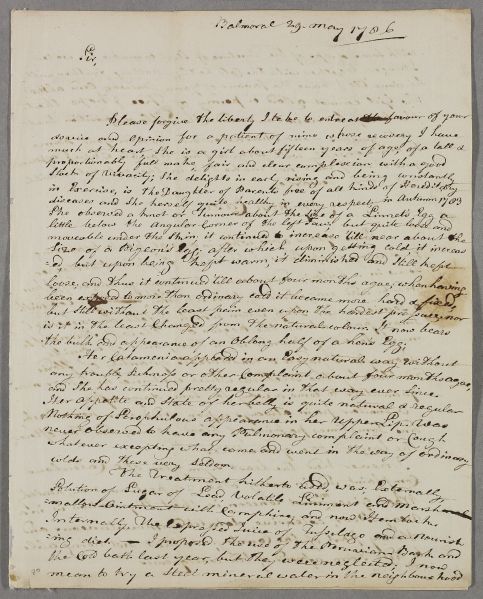 Balmoral 29. May 1786
Sir,
Please forgive the liberty I take to entreat the favour of your
advice and opinion for a patient of mine whose recovery I have
much at heart She is a girl about fifteen years of age of a tall &
proportionably full make, fair and clear complexion with a good
Stock of Vivacity; She delights in early rising and being constantly
in Exercise, is the Daughter of Parents free of all kinds of Hereditary
diseases and She herself quite healthy in every respect. in Autumn 1783
She observed a knot or Tumour about the size of a Linnets Egg a
little below the angular corner of the left Jaw but quite loose and
moveable under the Skin it continued to increase till near about the
Size of a Pigeons Egg, after which upon getting cold it increas
-ed, but upon being kept warm, it diminished and Still kept
loose, and thus it continued till about four months ago, when having
been exposed to more than ordinary cold it became more hard & fixed,
but Still without the least pain even upon the hardest pressure, nor
is it in the least Changed from the natural colour. I now bears
the bulk and appearance of an Oblong half of a hens Egg.
Her Catamenia appeared in an Easy natural way without
any trouble Sickness or other Complaint, about four months ago,
and She has continued pretty regular in that way ever Since.
Her appetite and State of her belly is quite natural & regular
Nothing of Scrophulous appearance in her Upper Lip: Was
never observed to have any Pulmonary complaint or Cough
whatever excepting what came and went in the way of ordinary
colds and these very Seldom.
The Treatment hitherto used was, Externally
Solution of Sugar of Lead Volatile Liniment and Marshm
mallow Ointment with Camphire, and now Hemlock
Internally The Expressed Juice of Tussilago and a nourish
-ing diet. — I proposed the use of The Peruvian Bark and
the Cold bath last year, but they were neglected; I now
mean to try a Steel mineral water in the neighbourhood